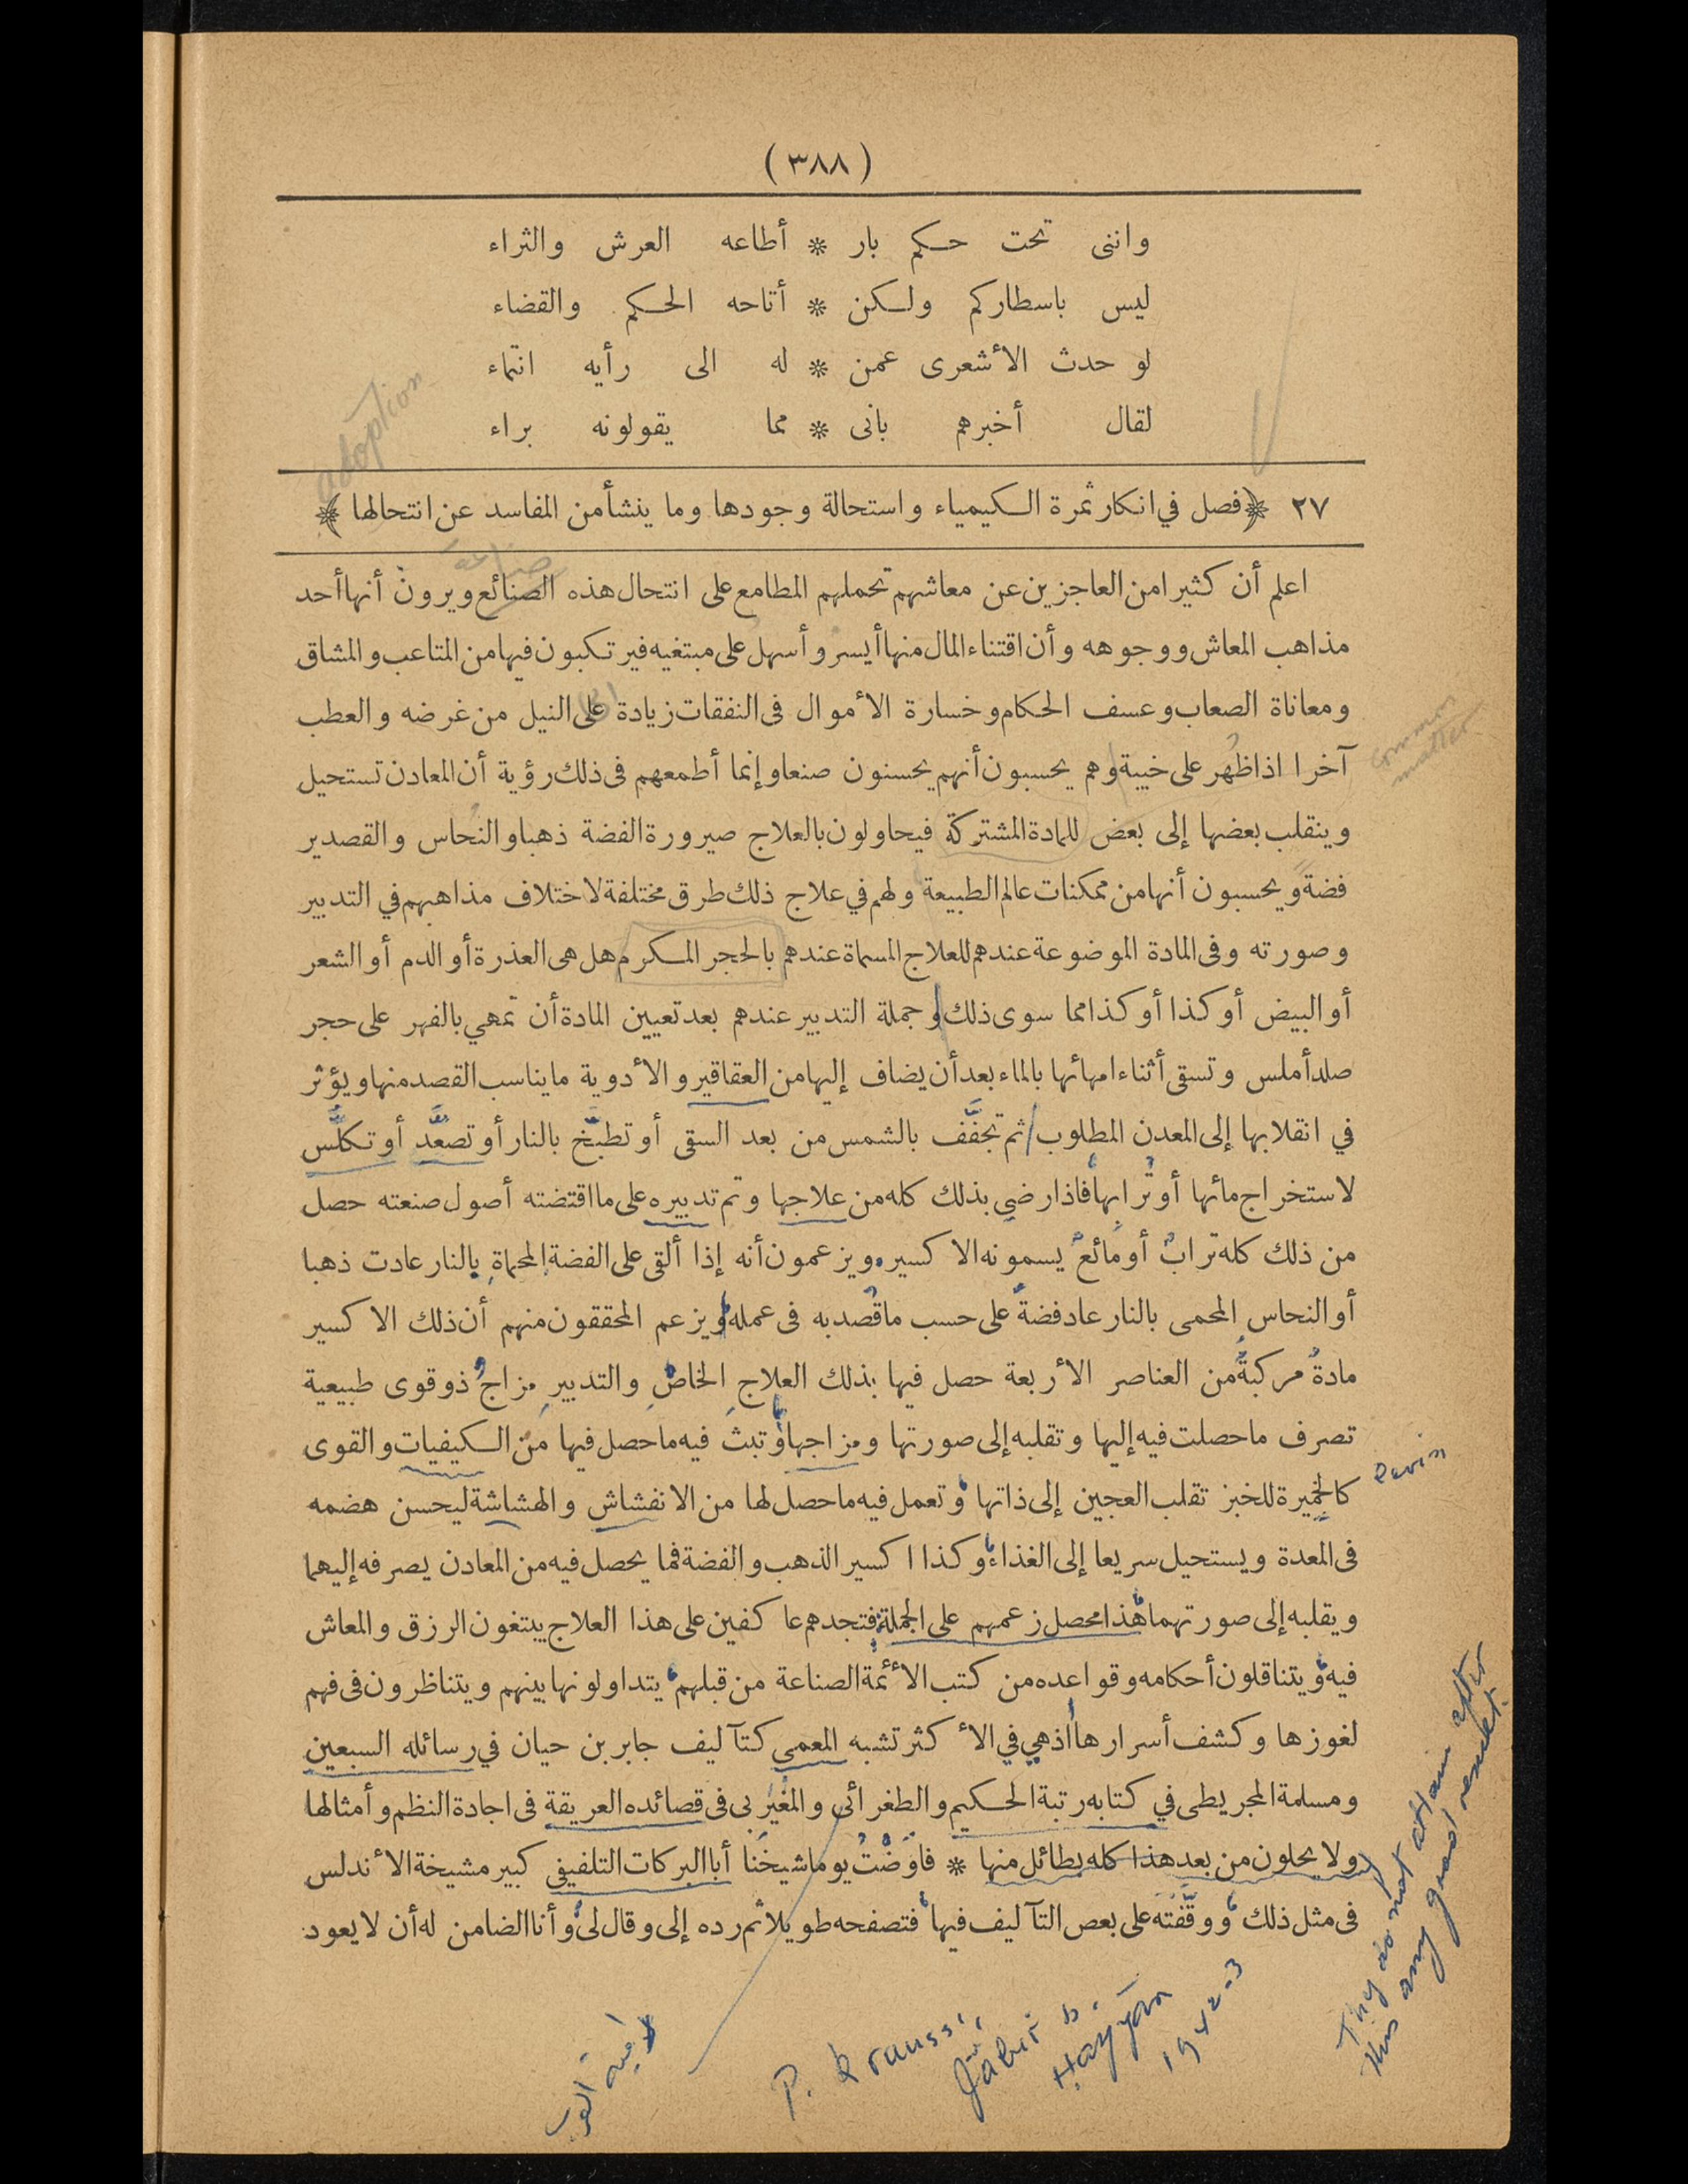 ( ٣٨٨ )
واننى تحت حكم بار * أطاعه العرش والثراء
ليس باسطاركم ولكن * أتاحه الحكم والقضاء
لو حدث الأشعرى عمن * له الى رأيه انتماء
لقال أخبرهم بانى * مما يقولونه براء
adoption
٢٧ ﴿فصل في انكار ثمرة الكيمياء واستحالة وجودها وما ينشأ من المفاسد عن انتحالها﴾
صناعة
اعلم أن كثيرا من العاجزين عن معاشهم تحملهم المطامع على انتحال هذه الصنائع ويرون أنها أحد
مذاهب المعاش ووجوهه وأن اقتناء المال منها أيسر وأسهل على مبتغيه فيرتكبون فيها من المتاعب والمشاق
ومعاناة الصعاب وعسف الحكام وخسارة الأموال فى النفقات زيادة على النيل من غرضه والعطب
common matter
آخرا اذا ظهر على خيبة وهم يحسبون أنهم يحسنون صنعا وإنما أطمعهم فى ذلك رؤية أن المعادن تستحيل
وينقلب بعضها إلى بعض للمادة المشتركة فيحاولون بالعلاج صيرورة الفضة ذهبا والنحاس والقصدير
فضة ويحسبون أنها من ممكنات عالم الطبيعة ولهم في علاج ذلك طرق مختلفة لاختلاف مذاهبهم في التدبير
وصورته وفى المادة الموضوعة عندهم للعلاج المسماة عندهم بالحجر المكرم هل هى العذرة أو الدم أو الشعر
أو البيض أو كذا أو كذا مما سوى ذلك وجملة التدبير عندهم بعد تعيين المادة أن تمهي بالفهر على حجر
صلد أملس وتسقى أثناء امهائها بالماء بعد أن يضاف إليها من العقاقير والأدوية ما يناسب القصد منها ويؤثر
في انقلابها إلى المعدن المطلوب ثم تجفَّف بالشمس من بعد السقى أو تطبَّخ بالنار أو تصعَّد أو تكلَّس
لاستخراج مائها أو تُرابِها فاذا رضي بذلك كله من علاجها وتم تدبيره على ما اقتضته أصول صنعته حصل
من ذلك كله ترابٌ أو مائعٌ يسمونه الاكسير ويزعمون أنه إذا ألقى على الفضة المحماة بالنار عادت ذهبا
أو النحاس المحمى بالنار عاد فضةً على حسب ما قُصد به فى عمله ويزعم المحققون منهم أن ذلك الاكسير
مادةٌ مركبةٌ من العناصر الأربعة حصل فيها بذلك العلاجِ الخاصِّ والتدبيرِ مزاجٌ ذو قوى طبيعية
تصرف ما حصلت فيه إليها وتقلبه إلى صورتها ومزاجها وتبث فيه ما حصل فيها من الكيفيات والقوى
كالخميرة للخبز تقلب العجين إلى ذاتها وتعمل فيه ما حصل لها من الانفشاش والهشاشة ليحسن هضمه
فى المعدة ويستحيل سريعا إلى الغذاء وكذا اكسير الذهب والفضة فما يحصل فيه من المعادن يصرفه إليهما
ويقلبه إلى صورتهما هذا محصل زعمهم على الجملة فتجدهم عاكفين على هذا العلاج يبتغون الرزق والمعاش
فيه ويتناقلون أحكامه وقواعده من كتب الأئمة الصناعة من قبلهم يتداولونها بينهم ويتناظرون فى فهم
لغوزها وكشف أسرارها اذ هي في الأكثر تشبه المعمى كتآليف جابر بن حيان في رسائله السبعين
ومسلمة المجريطى في كتابه رتبة الحكيم والطغرائى والمغيربى فى قصائده العريقة فى اجادة النظم وأمثالها
ولا يحلون من بعد هذا كله بطائل منها * فاوَضْتُ يوما شيخَنا أبا البركات التلفيفى كبير مشيخة الأندلس
فى مثل ذلك ووقَّفْتَه على بعض التآليف فيها فتصفحه طويلا ثم رده إلى وقال لى وأنا الضامن له أن لا يعود
They do not attain after
this any good result.
P. Krauss,
Jābir b.
Hayyān
1942-3